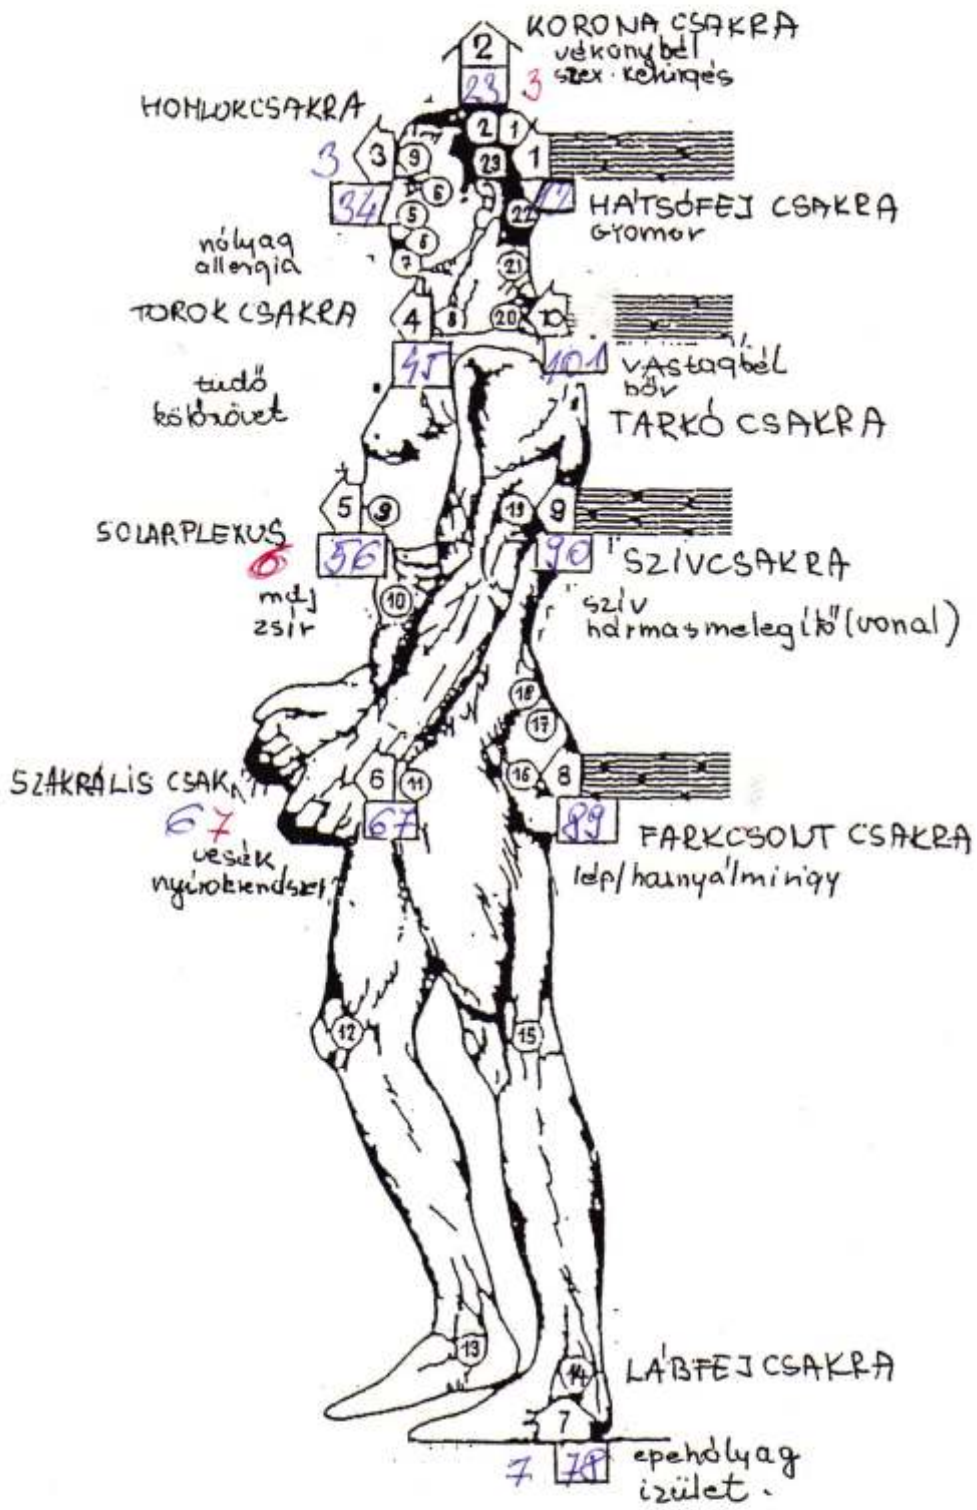 KORONA CSAKRA
vékonybél
szex. keringés
2
23 3
HOMLOKCSAKRA
2 1
3 3 9 23 1
34 6 12
5 22
HÁTSÓFEJ CSAKRA
GYOMOR
6
7 21
hólyag
allergia
TOROK CSAKRA
4 8 20 10
45 101
vastagbél
bőr
tüdő
kötőszövet
TARKÓ CSAKRA
5 9 19 9
SOLARPLEXUS
6 56 90
SZÍVCSAKRA
máj
zsír
10
szív
hármasmelegítő (vonal)
18
17
SZAKRÁLIS CSAK
6 11 16 8
6 7 67 89
FARKCSONT CSAKRA
vesék
nyirokrendszer
lép/hasnyálmirigy
12 15
13 14
LÁBFEJ CSAKRA
7
7 78
epehólyag
izület.